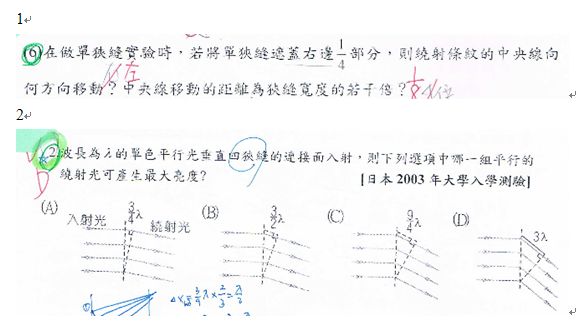 1
(6)在做單狹縫實驗時,若將單狹縫遮蓋右邊1/4部分,則繞射條紋的中央線向
何方向移動?中央線移動的距離為狹縫寬度的若干倍?1/8
左
2
2.波長為λ的單色平行光垂直四狹縫的連接面入射,則下列選項中哪一組平行的
D
繞射光可產生最大亮度? [日本 2003 年大學入學測驗]
(A) 入射光 3/4λ 繞射光 (B) 3/2λ (C) 9/4λ (D) 3λ